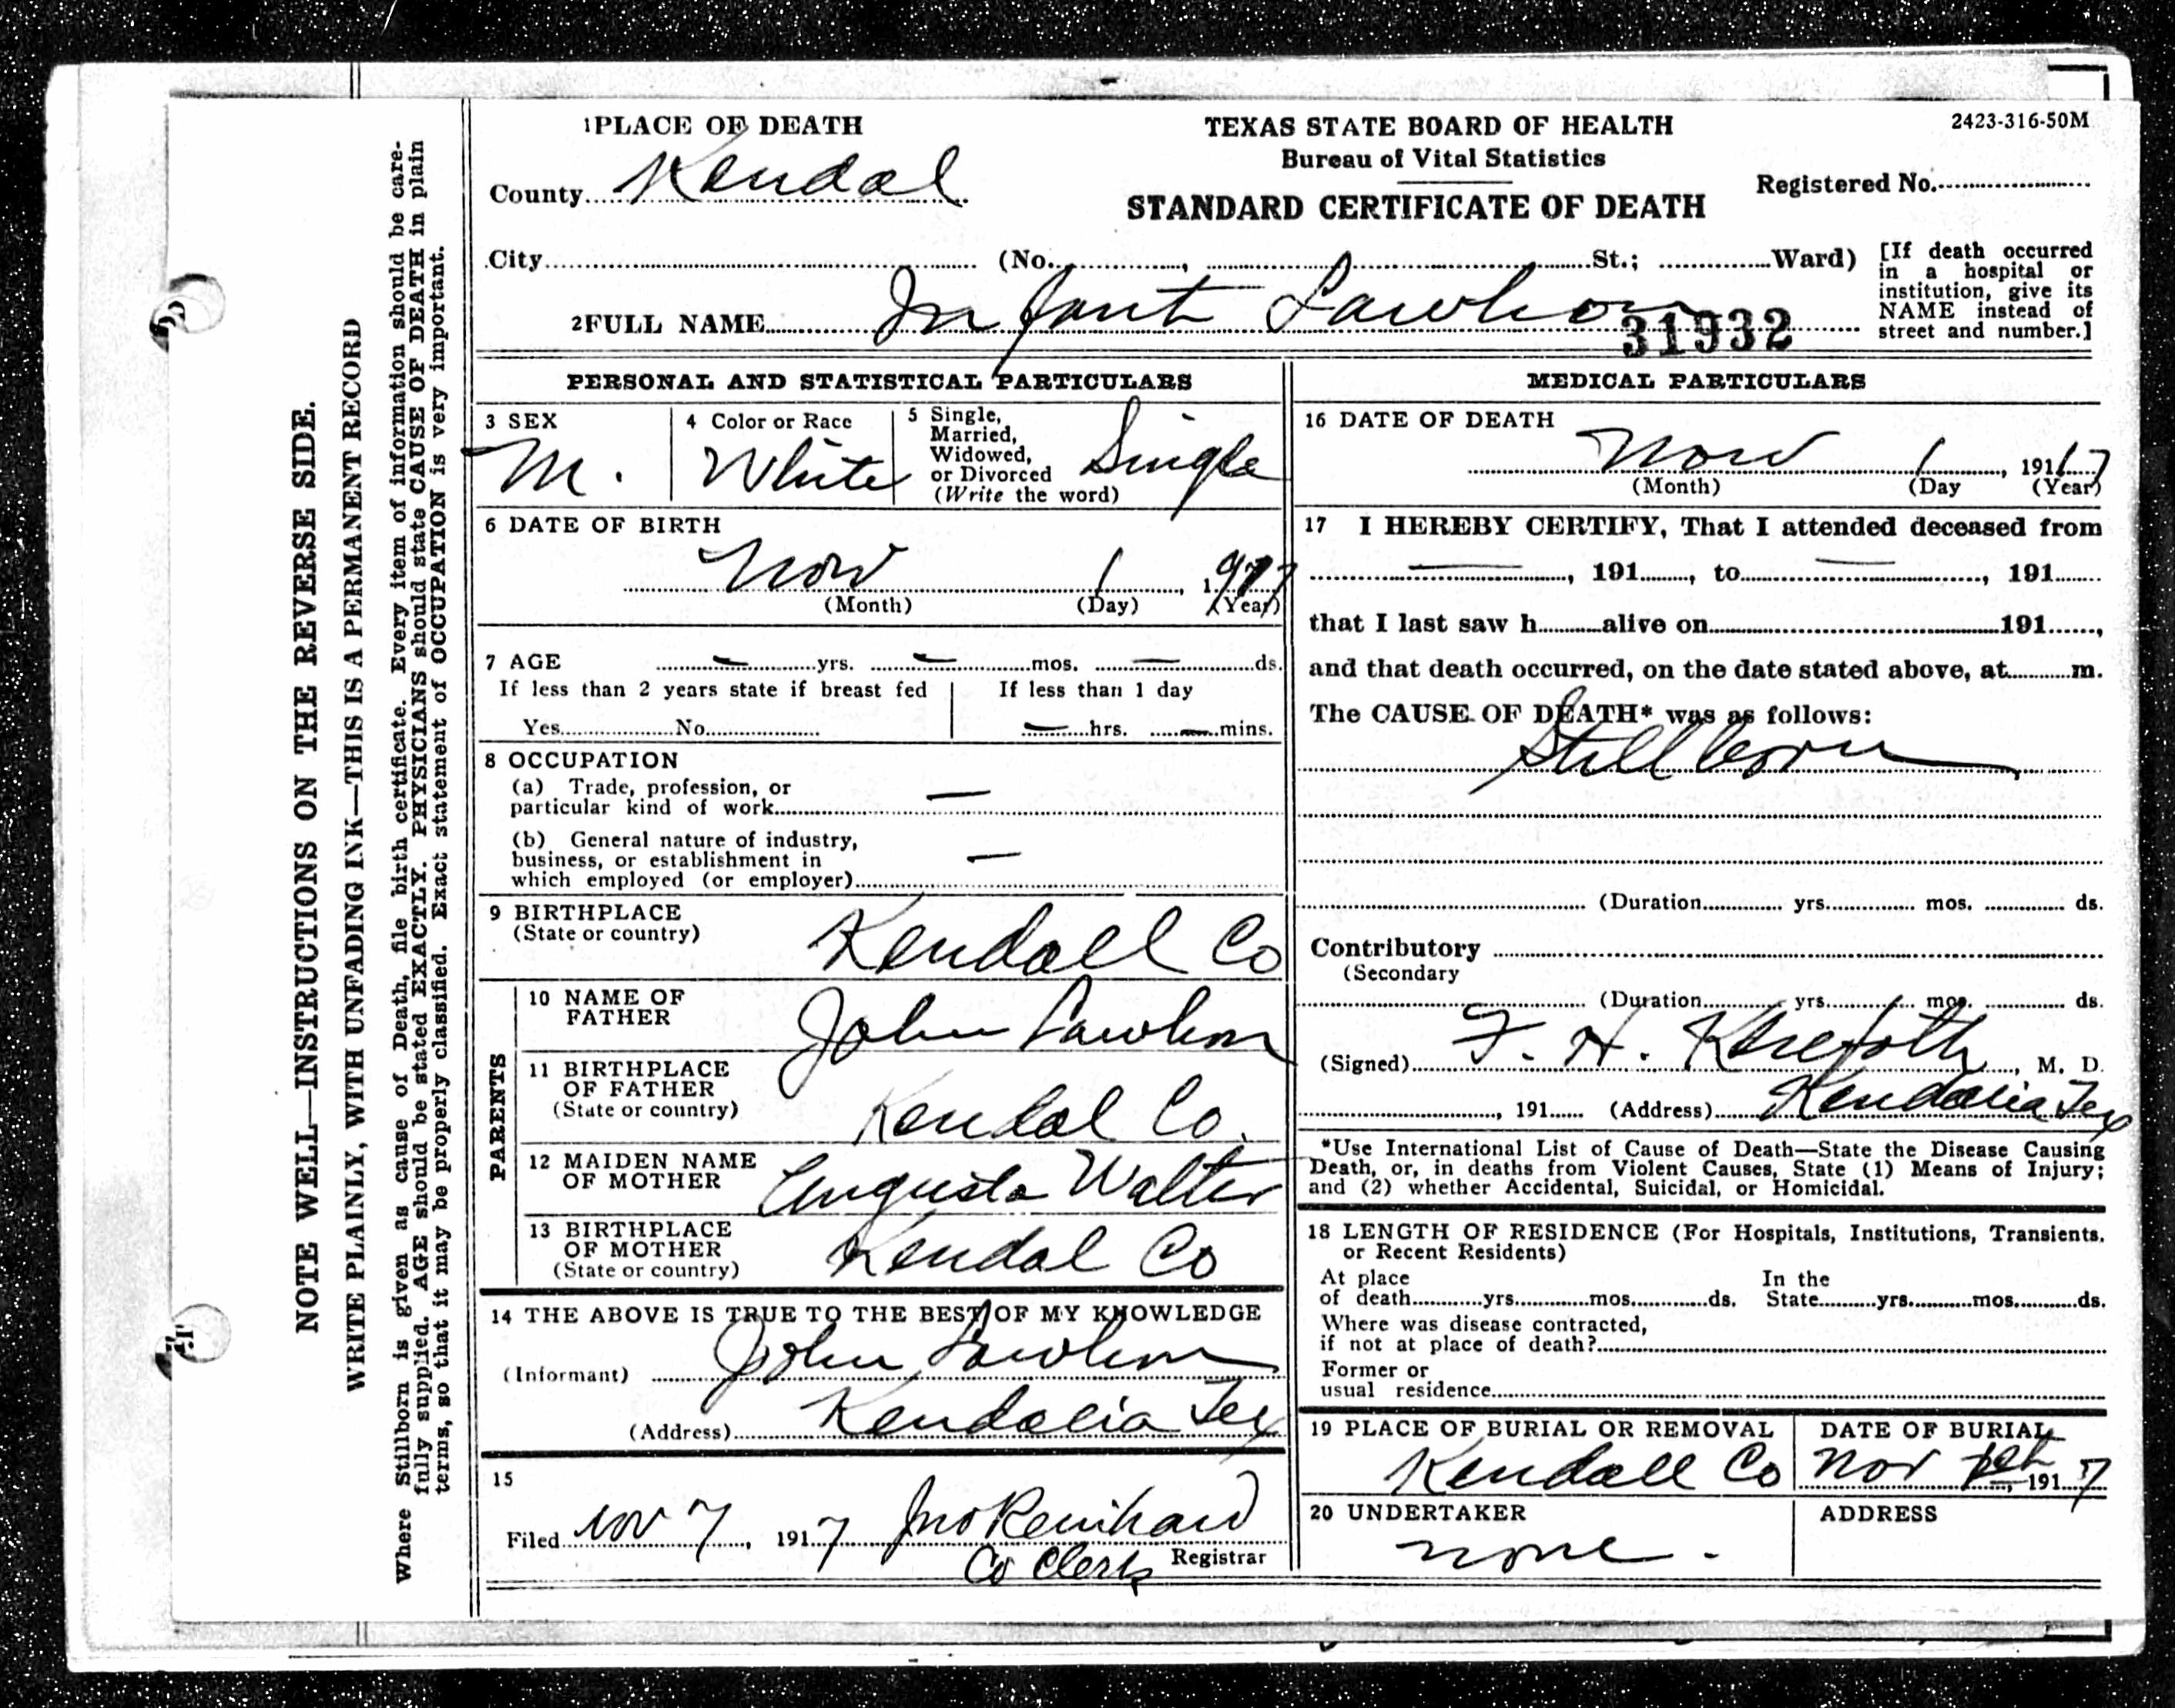 NOTE WELL—INSTRUCTIONS ON THE REVERSE SIDE.
WRITE PLAINLY, WITH UNFADING INK—THIS IS A PERMANENT RECORD
Where Stillborn is given as cause of Death, file birth certificate. Every item of information should be care-
fully supplied. AGE should be stated EXACTLY. PHYSICIANS should state CAUSE OF DEATH in plain
terms, so that it may be properly classified. Exact statement of OCCUPATION is very important.
1 PLACE OF DEATH
County Kendal
TEXAS STATE BOARD OF HEALTH
Bureau of Vital Statistics
STANDARD CERTIFICATE OF DEATH
2423-316-50M
Registered No.
City (No. , St.; Ward)
[If death occurred
in a hospital or
institution, give its
NAME instead of
street and number.]
2 FULL NAME Infant Lawhon
31932
PERSONAL AND STATISTICAL PARTICULARS
3 SEX
M.
4 Color or Race
White
5 Single,
Married,
Widowed,
or Divorced
(Write the word)
Single
6 DATE OF BIRTH
Nov 1, 1917
(Month) (Day) (Year)
7 AGE — yrs. — mos. — ds.
If less than 2 years state if breast fed
Yes No
If less than 1 day
— hrs. — mins.
8 OCCUPATION
(a) Trade, profession, or
particular kind of work —
(b) General nature of industry,
business, or establishment in
which employed (or employer) —
9 BIRTHPLACE
(State or country)
Kendall Co
PARENTS
10 NAME OF
FATHER
John Lawhon
11 BIRTHPLACE
OF FATHER
(State or country)
Kendal Co.
12 MAIDEN NAME
OF MOTHER
Augusta Walter
13 BIRTHPLACE
OF MOTHER
(State or country)
Kendal Co
14 THE ABOVE IS TRUE TO THE BEST OF MY KNOWLEDGE
(Informant) John Lawhon
(Address) Kendalia Tex
15
Filed Nov 7, 1917 Jno Reinhard
Co Clerk Registrar
MEDICAL PARTICULARS
16 DATE OF DEATH
Nov 1, 1917
(Month) (Day (Year)
17 I HEREBY CERTIFY, That I attended deceased from
—, 191 , to —, 191
that I last saw h alive on 191 ,
and that death occurred, on the date stated above, at m.
The CAUSE OF DEATH* was as follows:
Stillborn
(Duration yrs. mos. ds.
Contributory
(Secondary
(Duration yrs. mos. ds.
(Signed) F. H. , M. D.
, 191 (Address) Kendalia Tex
*Use International List of Cause of Death—State the Disease Causing
Death, or, in deaths from Violent Causes, State (1) Means of Injury;
and (2) whether Accidental, Suicidal, or Homicidal.
18 LENGTH OF RESIDENCE (For Hospitals, Institutions, Transients.
or Recent Residents)
At place
of death yrs. mos. ds.
In the
State yrs. mos. ds.
Where was disease contracted,
if not at place of death?
Former or
usual residence
19 PLACE OF BURIAL OR REMOVAL
Kendall Co
DATE OF BURIAL
Nov 1917
20 UNDERTAKER
none.
ADDRESS